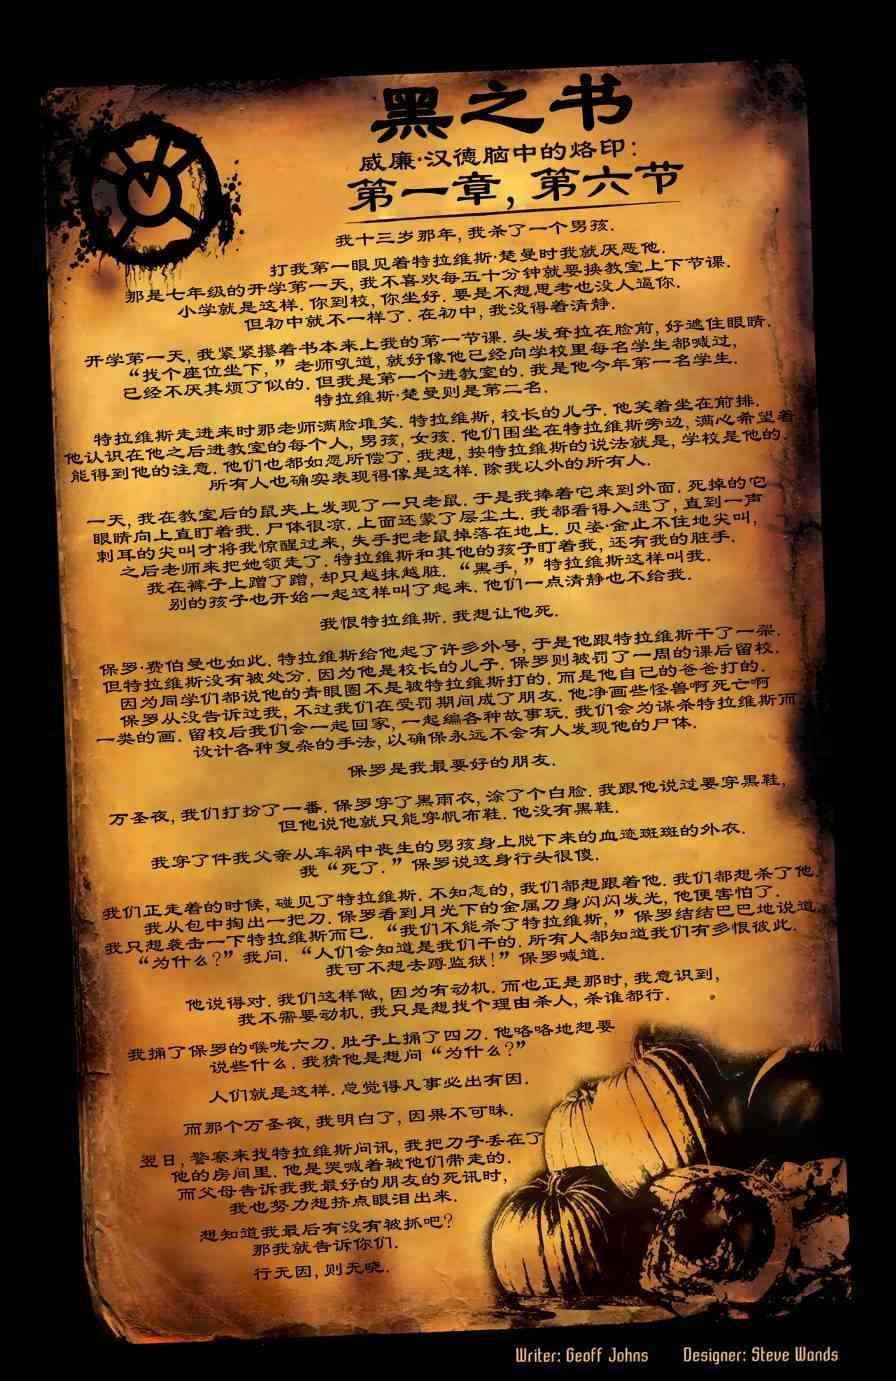 黑之书
威廉·汉德脑中的烙印:
第一章,第六节
我十三岁那年,我杀了一个男孩.
打我第一眼见着特拉维斯·楚曼时我就厌恶他.
那是七年级的开学第一天,我不喜欢每五十分钟就要换教室上下节课.
小学就是这样.你到校,你坐好.要是不想思考也没人逼你.
但初中就不一样了.在初中,我没得着清静.
开学第一天,我紧紧攥着书本来上我的第一节课.头发耷拉在脸前,好遮住眼睛.
“找个座位坐下,”老师吼道,就好像他已经向学校里每名学生都喊过,
已经不厌其烦了似的.但我是第一个进教室的.我是他今年第一名学生.
特拉维斯·楚曼则是第二名.
特拉维斯走进来时那老师满脸堆笑.特拉维斯,校长的儿子.他笑着坐在前排.
他认识在他之后进教室的每个人,男孩,女孩.他们围坐在特拉维斯旁边,满心希望着
能得到他的注意.他们也都如愿所偿了.我想,按特拉维斯的说法就是,学校是他的.
所有人也确实表现得像是这样.除我以外的所有人.
一天,我在教室后的鼠夹上发现了一只老鼠.于是我捧着它来到外面.死掉的它
眼睛向上直盯着我.尸体很凉.上面还蒙了层尘土.我都看得入迷了,直到一声
刺耳的尖叫才将我惊醒过来,失手把老鼠掉落在地上.贝姿·金止不住地尖叫,
之后老师来把她领走了.特拉维斯和其他的孩子盯着我,还有我的脏手.
我在裤子上蹭了蹭,却只越抹越脏.“黑手,”特拉维斯这样叫我.
别的孩子也开始一起这样叫了起来.他们一点清静也不给我.
我恨特拉维斯.我想让他死.
保罗·费伯曼也如此.特拉维斯给他起了许多外号,于是他跟特拉维斯干了一架.
但特拉维斯没有被处分.因为他是校长的儿子.保罗则被罚了一周的课后留校.
因为同学们都说他的青眼圈不是被特拉维斯打的.而是他自己的爸爸打的.
保罗从没告诉过我,不过我们在受罚期间成了朋友.他净画些怪兽啊死亡啊
一类的画.留校后我们会一起回家,一起编各种故事玩.我们会为谋杀特拉维斯而
设计各种复杂的手法,以确保永远不会有人发现他的尸体.
保罗是我最要好的朋友.
万圣夜,我们打扮了一番.保罗穿了黑雨衣,涂了个白脸.我跟他说过要穿黑鞋,
但他说他就只能穿帆布鞋.他没有黑鞋.
我穿了件我父亲从车祸中丧生的男孩身上脱下来的血迹斑斑的外衣.
我“死了.”保罗说这身行头很傻.
我们正走着的时候,碰见了特拉维斯.不知怎的,我们都想跟着他.我们都想杀了他.
我从包中掏出一把刀.保罗看到月光下的金属刀身闪闪发光,他便害怕了.
我只想袭击一下特拉维斯而已.“我们不能杀了特拉维斯,”保罗结结巴巴地说道.
“为什么?”我问.“人们会知道是我们干的.所有人都知道我们有多恨彼此.
我可不想去蹲监狱!”保罗喊道.
他说得对.我们这样做,因为有动机.而也正是那时,我意识到,
我不需要动机.我只是想找个理由杀人,杀谁都行.
我捅了保罗的喉咙六刀.肚子上捅了四刀.他咯咯地想要
说些什么.我猜他是想问“为什么?”
人们就是这样.总觉得凡事必出有因.
而那个万圣夜,我明白了,因果不可昧.
翌日,警察来找特拉维斯问讯,我把刀子丢在了
他的房间里.他是哭喊着被他们带走的.
而父母告诉我我最好的朋友的死讯时,
我也努力想挤点眼泪出来.
想知道我最后有没有被抓吧?
那我就告诉你们.
行无因,则无晓.
Writer: Geoff Johns
Designer: Steve Wands